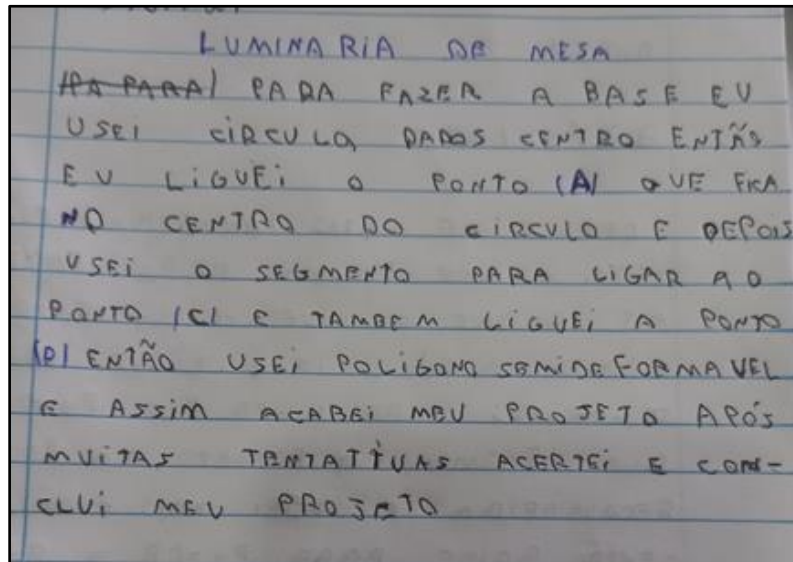 LUMINARIA DE MESA
/PA PARA/ PARA FAZER A BASE EU
USEI CIRCULO, DADOS CENTRO ENTÃO
EU LIGUEI O PONTO (A) QUE FICA
NO CENTRO DO CIRCULO E DEPOIS
USEI O SEGMENTO PARA LIGAR AO
PONTO (C) E TAMBEM LIGUEI A PONTO
(D) ENTÃO USEI POLIGONO SEMIDEFORMAVEL
E ASSIM ACABEI MEU PROJETO APÓS
MUITAS TENTATIVAS ACERTEI E CON-
CLUI MEU PROJETO